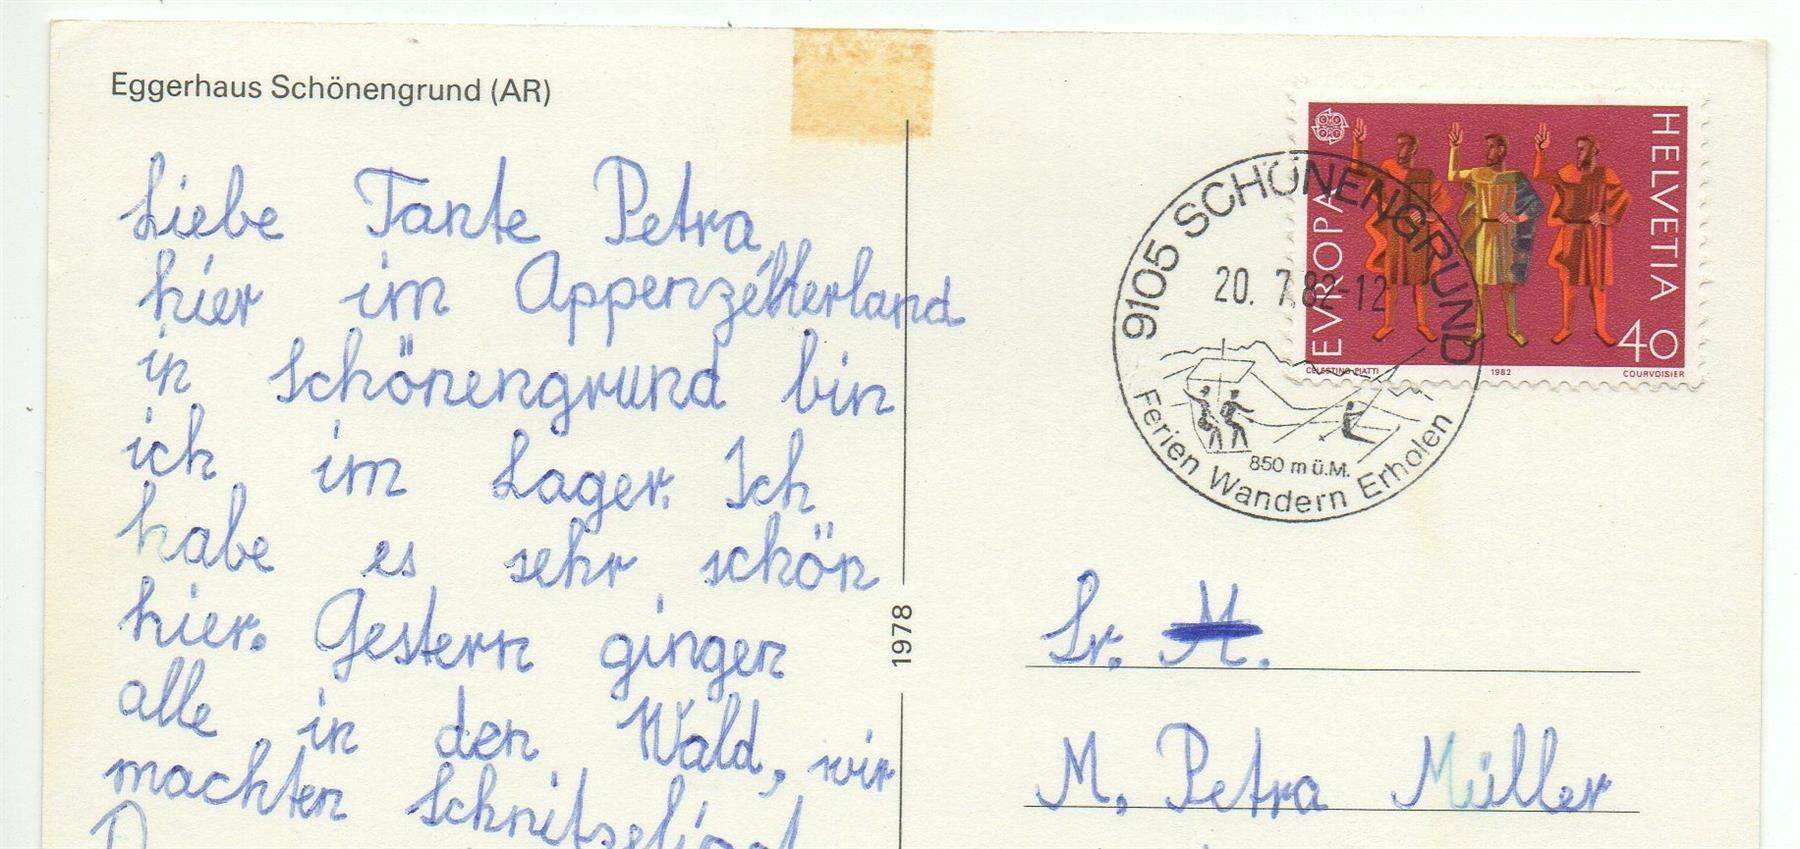 Eggerhaus Schönengrund (AR)
Liebe Tante Petra,
hier im Appenzellerland
in Schönengrund bin
ich im Lager. Ich
habe es sehr schön
hier. Gestern gingen
alle in den Wald, wir
machten Schnitzeljagd
1978
HELVETIA
EVROPA
40
CELESTINO PIATTI
1982
COURVOISIER
9105 SCHÖNENGRUND
20. 7.82-12
850 m ü.M.
Ferien Wandern Erholen
Sr. M.
M. Petra Müller